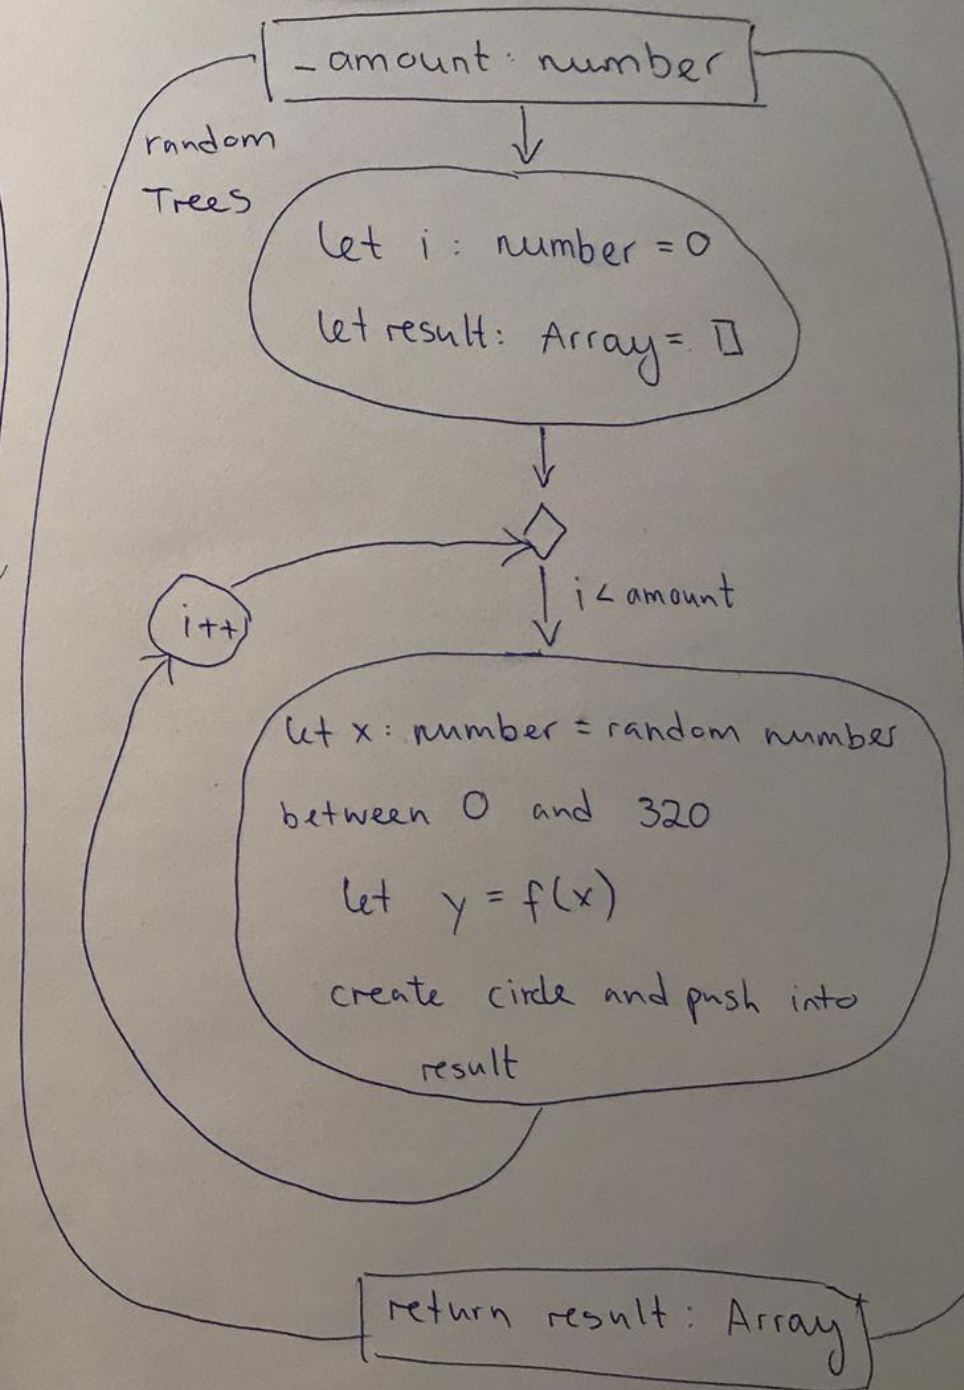 _amount: number
random
Trees
let i: number = 0
let result: Array = []
i < amount
i++
let x: number = random number
between 0 and 320
let y = f(x)
create circle and push into
result
return result: Array